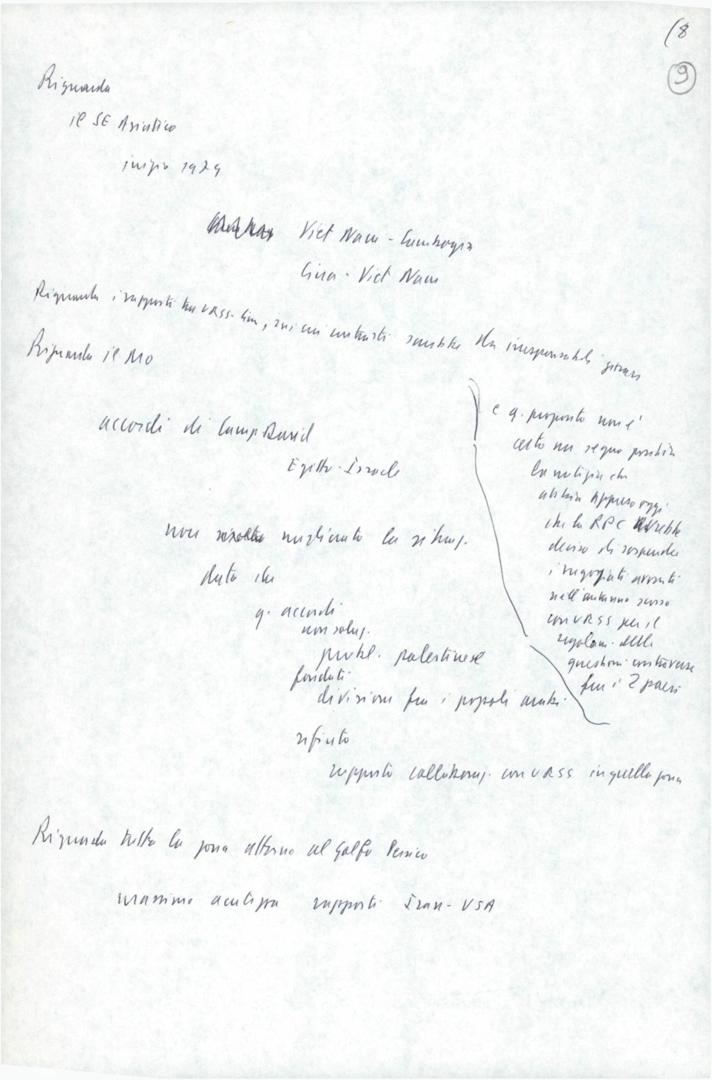 (8
9
Riguarda
il SE Asiatico
inizio 1979
Viet Nam - Cambogia
Cina - Viet Nam
Riguarda i rapporti tra URSS-Cina, sui cui contrasti sarebbe da irresponsabili
Riguarda il MO
accordi di Camp David
Egitto - Israele
non migliorato la situaz.
dato che
q. accordi
non soluz.
probl. palestinese
fondati
divisione fra i popoli arabi
rifiuto
rapporto collaboraz. con URSS in quella zona
e q. proposito non è
certo un segno positivo
la notizia che
abbiam appreso oggi
che la RPC avrebbe
deciso di sospendere
i negoziati avviati
nell'autunno scorso
con URSS per il
regolam. delle
questioni controverse
fra i 2 paesi
Riguarda tutta la zona attorno al Golfo Persico
massima acutezza rapporti Iran - USA